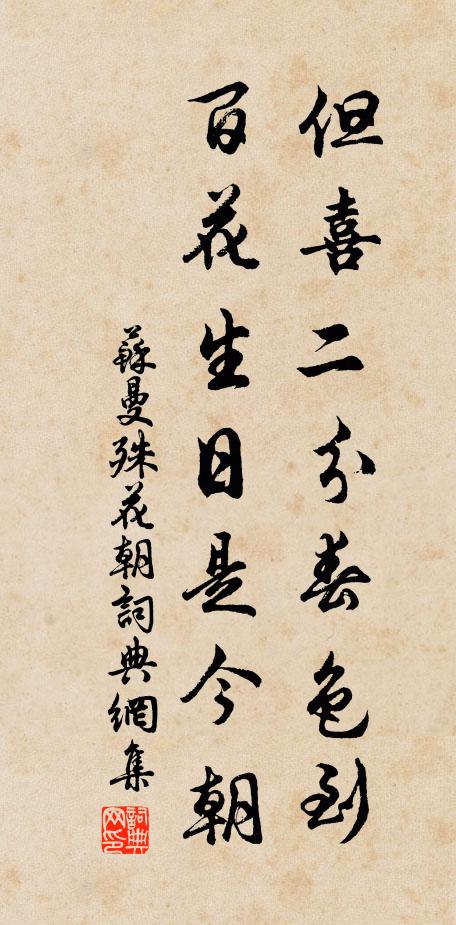 但喜二分春色到
百花生日是今朝
蘇曼殊花朝詞典網集
詞典网印